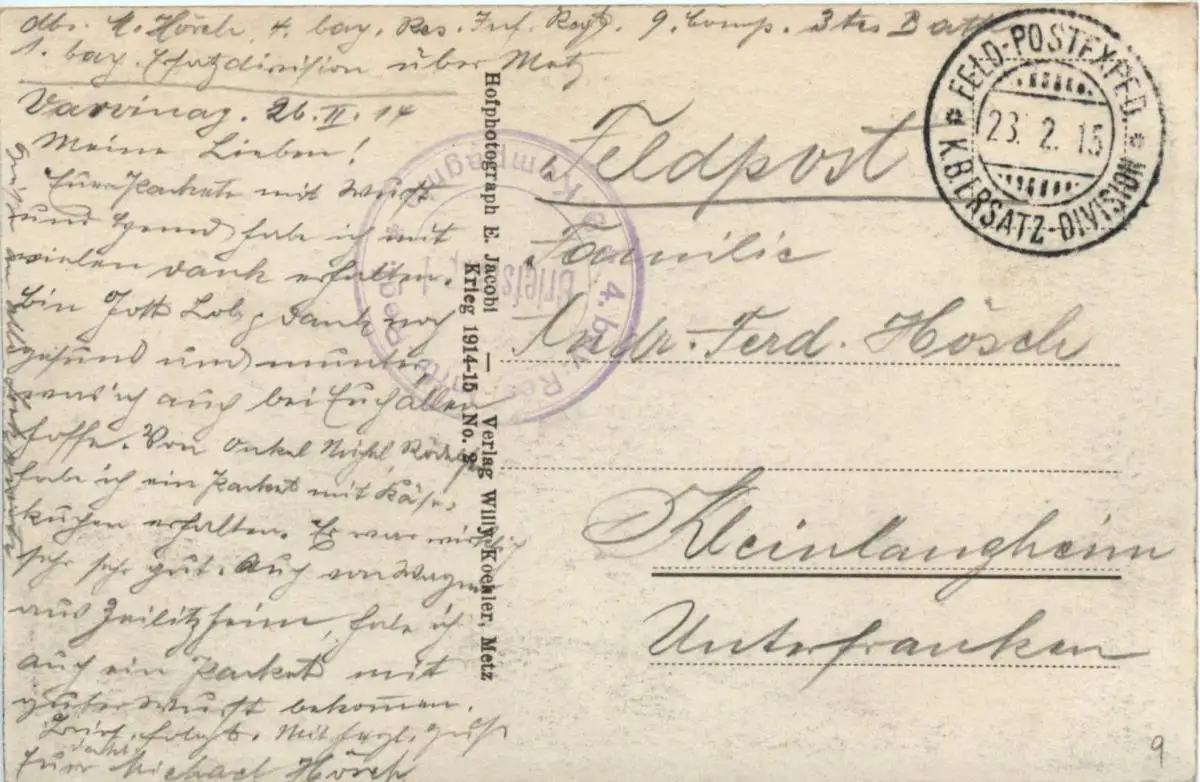 Abs. M. Hösch, 4. bay. Res. Inf. Regt. 9. Comp. 3tes Batl.
1. bay. Ersatzdivision über Metz
26. II. 14
Meine Lieben!
Eure Packete mit Wurst
und Hemd habe ich mit
vielen Dank erhalten.
Bin Gott Lob & Dank noch
gesund und munter
was ich auch bei Euch allen
hoffe. Von Onkel Michel
habe ich ein Packet mit Käse-
kuchen erhalten. Er war wirklich
sehr sehr gut. Auch von Wagner
aus Zeilitzheim, habe ich
auch ein Packet mit
guter Wurst bekommen.
Brief folgt. Mit herzl. Gruß
Euer Michael Hösch
Hofphotograph E. Jacobi — Verlag Willy Koehler, Metz
Krieg 1914-15 No. 2
Feldpost
Familie
Andr. Ferd. Hösch
Kleinlangheim
Unterfranken
* FELD-POSTEXPED. *
23. 2. 15
K.B. ERSATZ-DIVISION
Briefst
9